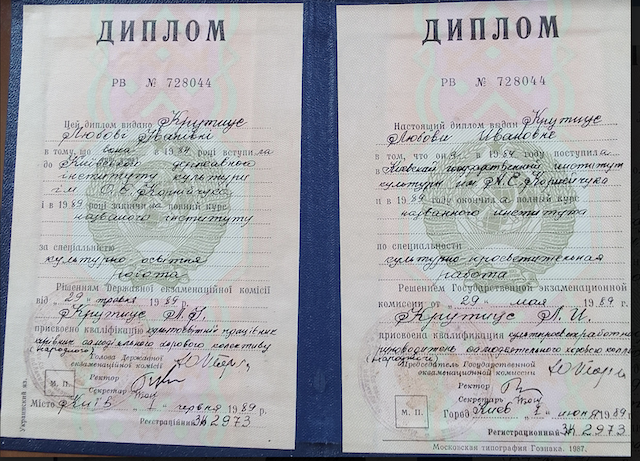 ДИПЛОМ
РВ № 728044
Цей диплом видано Крутиус
Любові Іванівні
в тому, що вона в 1984 році вступила
до Київського державного
інституту культури
ім. О. Є. Корнійчука
і в 1989 році закінчила повний курс
названого інституту
за спеціальністю
культурно-освітня
робота
Рішенням Державної екзаменаційної комісії
від „29" травня 1989 р.
Крутиус Л. І.
присвоєно кваліфікацію культосвітній працівник
керівник самодіяльного хорового колективу
(народного)
Голова Державної
екзаменаційної комісії
Ректор
Секретар
М. П.
Місто Київ „1" червня 1989 р.
Реєстраційний № 2973
Украинский яз.
ДИПЛОМ
РВ № 728044
Настоящий диплом выдан Крутиус
Любови Ивановне
в том, что она в 1984 году поступила
в Киевский государственный институт
культуры им. А. Е. Корнейчука
и в 1989 году окончила полный курс
названного института
по специальности
культурно-просветительная
работа
Решением Государственной экзаменационной
комиссии от „29" мая 1989 г.
Крутиус Л. И.
присвоена квалификация культпросветработник
руководитель самодеятельного хорового
(народного)
Председатель Государственной
экзаменационной комиссии
Ректор
Секретарь
М. П.
Город Киев „1" июня 1989 г.
Регистрационный № 2973
Московская типография Гознака. 1987.